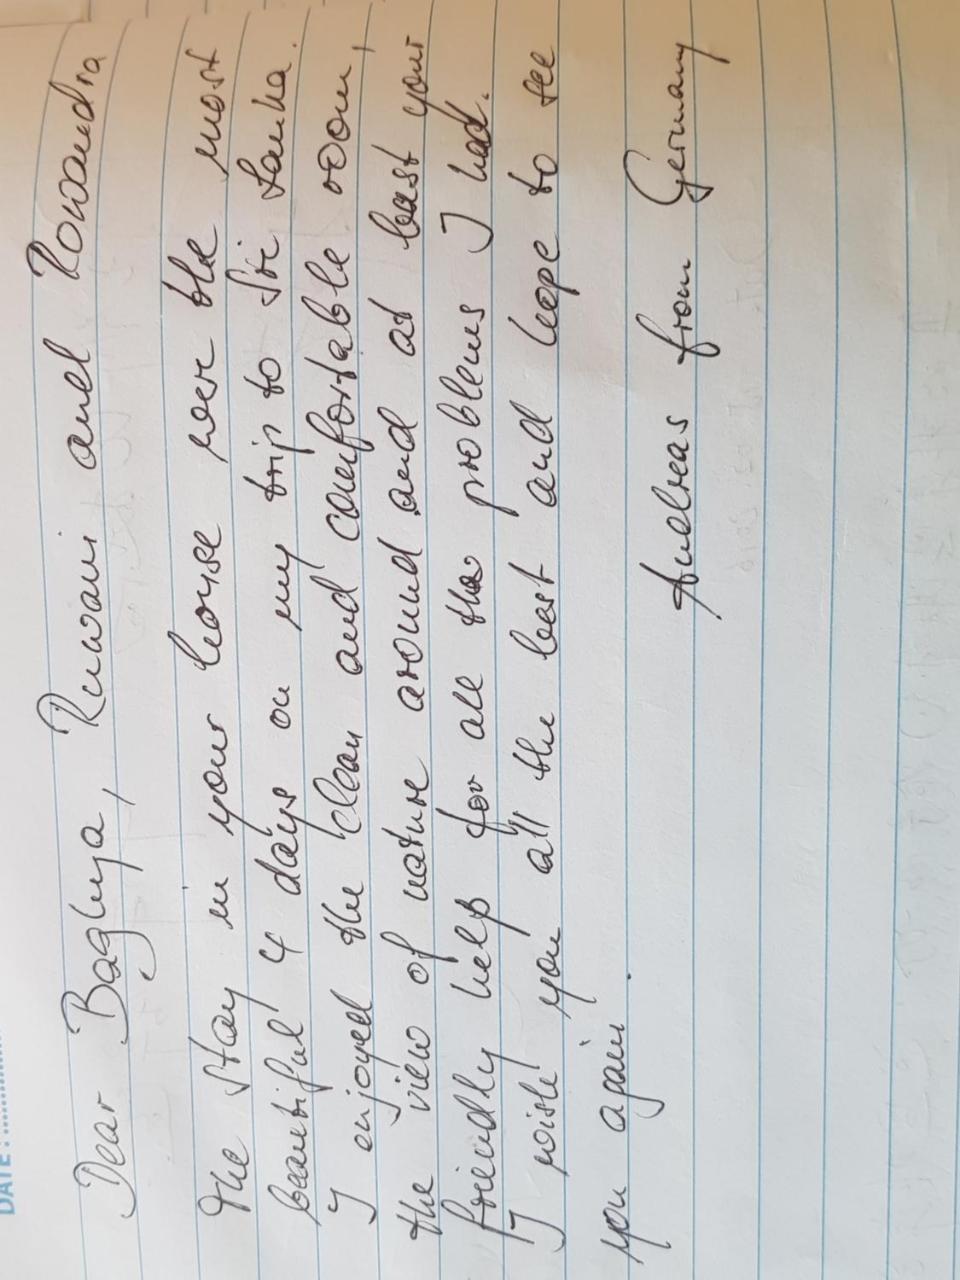 DATE :
Dear Baghya, Ruwani and Romandra
The stay in your house were the most
beautiful 4 days on my trip to Sri Lanka.
I enjoyed the clean and comfortable room,
the view of nature around and at least your
friendly help for all the problems I had.
I wish you all the best and hope to see
you again.
Andreas from Germany